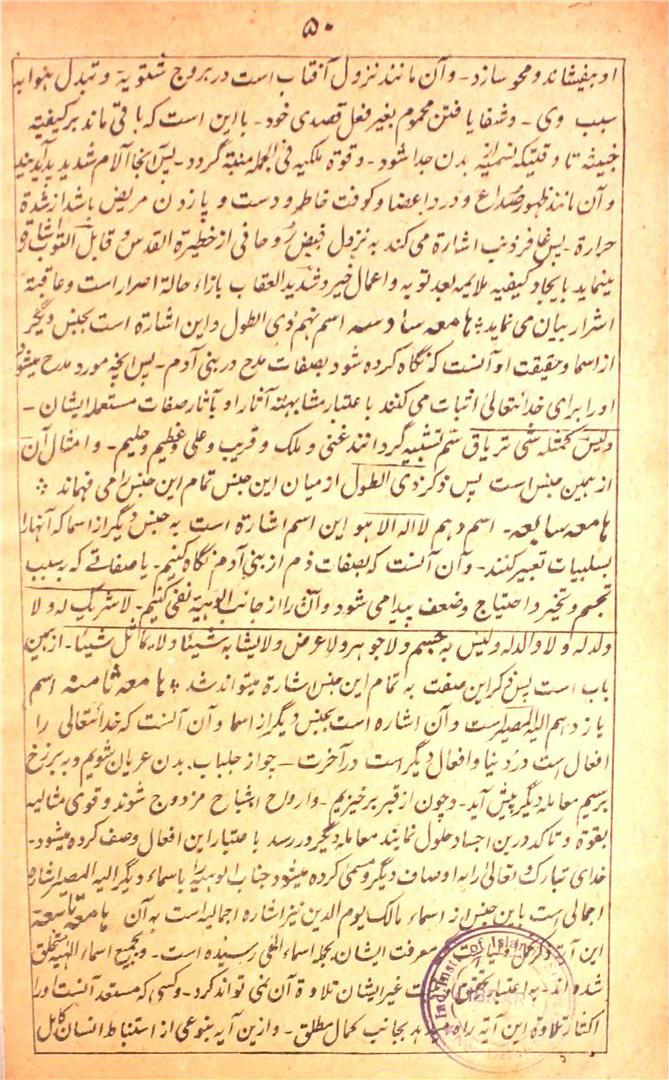 ۵۰
او بیفشاند و محو سازد - و آن مانند نزول آفتاب است در بروج شتویة و تبدل هوا به
سبب وی - و شفا یافتن محموم بغیر فعل قصدی خود - با این است که باقی ماند بر کیفیته
خبیثه تا وقتیکه نسمه از بدن جدا شود - و قوة ملکیه فی الجمله متنبه گردد - پس آنجا آلام شدید پدید آیند
و آن مانند ظهور صداع و درد اعضا و کوفت خاطر و دست و پا زدن مریض باشد از شدة
حرارة - پس غافر ذنب اشاره می کند به نزول فیض روحانی از حظیرة القدس و قابل التوب اشارة
مینماید بایجاد کیفیه ملایمه بعد توبه و اعمال خیر و شدید العقاب بازاء حالة اصرار است و عاقبة
اشرار بیان می نماید ؛ لامعه سادسه اسم نهم ذی الطول و این اشاره است بجنس دیگر
از اسما و حقیقت او آنست که نگاه کرده شود بصفات مدح در بنی آدم - پس آنچه مورد مدح میشود
او را برای خدا تعالی اثبات می کنند با عتبار مشابهته آثار او بآثار صفات مستعمله ایشان -
و لیس کمثله شی تریاق سم تشبیه گردانند غنی و ملک و قریب و علی و عظیم و حلیم - و امثال آن
از همین جنس است پس ذکر ذی الطول از میان این جنس تمام این جنس را می فهماند ؛
لامعه سابعه - اسم دهم لا اله الا هو این اسم اشاره است به جنس دیگر از اسما که آنها را
بسلبیات تعبیر کنند - و آن آنست که بصفات ذم از بنی آدم نگاه کنیم - یا صفاتے که بسبب
تجسم و تحیر و احتیاج و ضعف پیدا می شود و آن را از جانب الوهیة نفی کنیم - لا شریک له و لا
ولد له و لا والد له و لیس بجسم و لا جوهر و لا عرض و لا یشابه شیئا و لا یماثل شیئا - از همین
باب است پس ذکر این صفت به تمام این جنس اشاره میتواند شد ؛ لامعه ثامنه اسم
یازدهم الیه المصیر است و آن اشاره است بجنس دیگر از اسما و آن آنست که خدا تعالی را
افعال است در دنیا و افعال دیگر است در آخرت - چو از جلباب بدن عریان شویم و به برزخ
برسیم معامله دیگر پیش آید - و چون از قبر بر خیزیم - و ارواح اشباح مزدوج شوند و قوی مثالیه
بقوة و تاکد درین اجساد حلول نمایند معامله دیگر در رسد با عتبار این افعال وصف کرده میشود -
خدای تبارک و تعالی را به اوصاف دیگر و مسمی کرده میشود جناب الوهیة را باسماء دیگر الیه المصیر اشارة
اجمالی است باین جنس از اسماء مالک یوم الدین نیز اشاره اجمالیه است به آن لامعه تاسعة
این آیة معرفت ایشان بجمله اسماء الهی رسیده است - و بجمیع اسماء الهیه متخلق
شده اند غیر ایشان تلاوة آن نمی تواند کرد - و کسی که مستعد آنست او را
اکثار تلاوة این آیة راه بجانب کمال مطلق - و ازین آیه بنوعی از استنباط انسان کامل